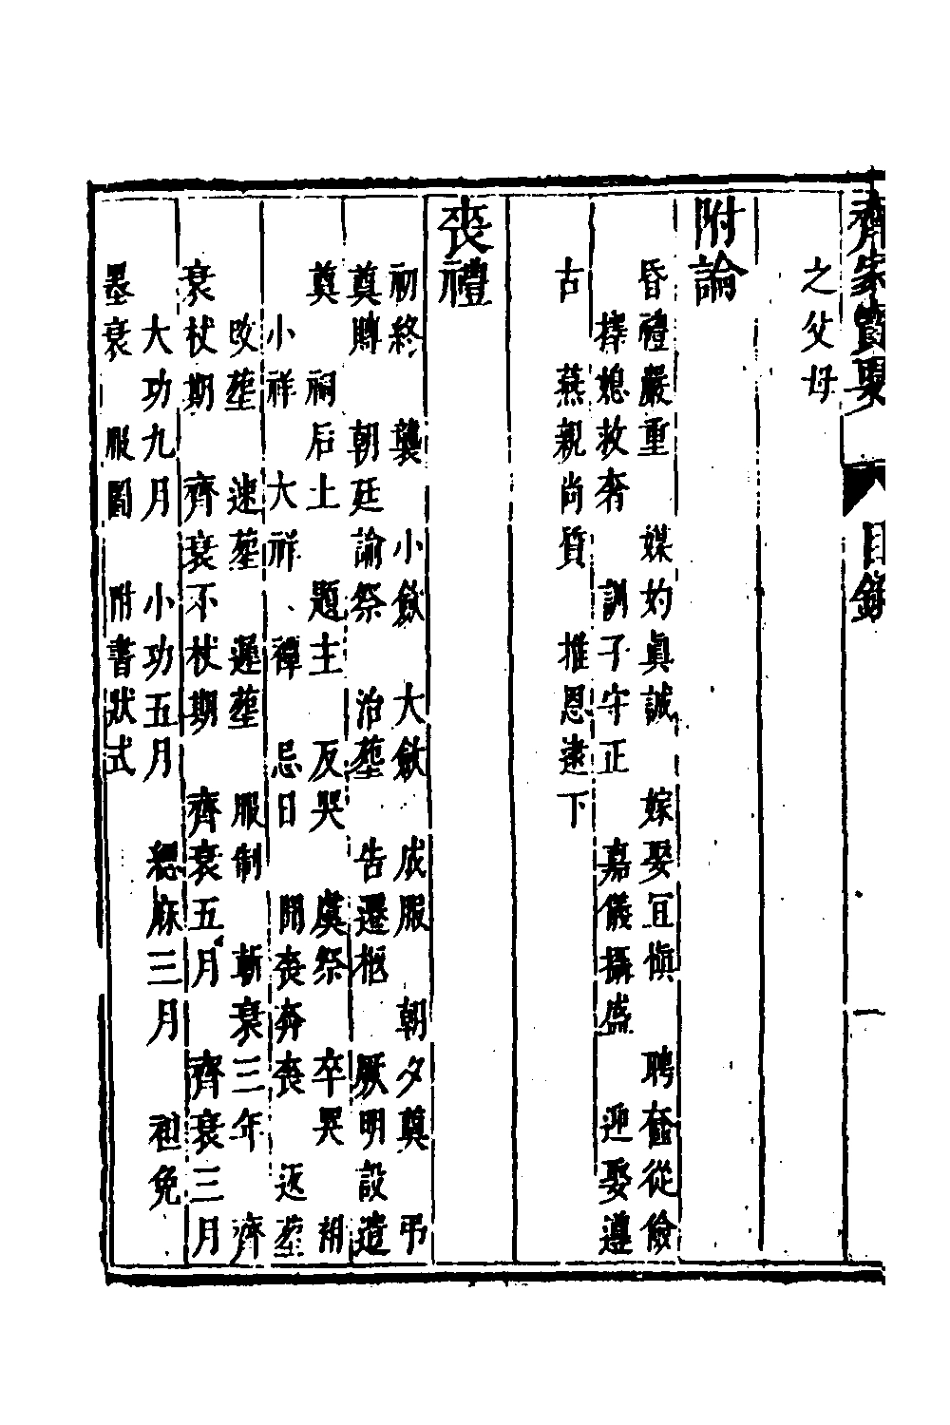 齊家寶要　目錄　一
之父母
附論
昏禮嚴重　媒妁眞誠　嫁娶宜愼　聘奩從儉
擇媳救奢　訓子守正　嘉儀攝盛　迎娶遵
古　燕親尚質　推恩逮下
喪禮
初終　襲　小斂　大斂　成服　朝夕奠　弔
奠賻　朝廷諭祭　治塟　告遷柩　厥明設遣
奠　祠后土　題主　反哭　虞祭　卒哭　祔
小祥　大祥　禫　忌日　聞喪奔喪　返塟
改塟　速塟　遲塟　服制　斬衰三年　齊
衰杖期　齊衰不杖期　齊衰五月　齊衰三月
大功九月　小功五月　緦麻三月　袒免
墨衰　服圖　附書狀式